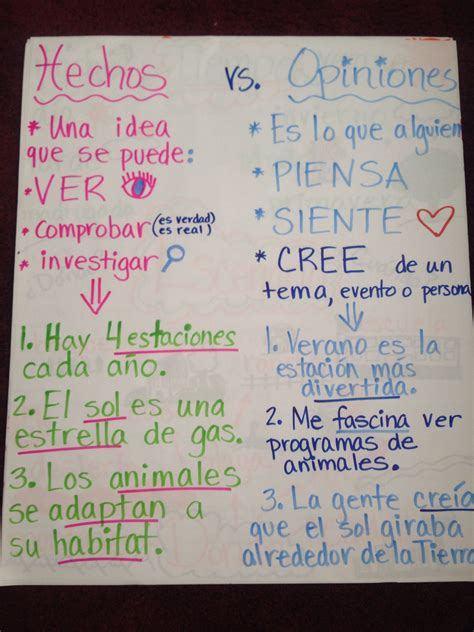 Hechos vs. Opiniones
* Una idea
que se puede:
* VER
* comprobar (es verdad)
(es real)
* investigar
1. Hay 4 estaciones
cada año.
2. El sol es una
estrella de gas.
3. Los animales
se adaptan a
su habitat.
* Es lo que alguien
* PIENSA
* SIENTE
* CREE de un
tema, evento o persona
1. Verano es la
estación más
divertida.
2. Me fascina ver
programas de
animales.
3. La gente creía
que el sol giraba
alrededor de la Tierra